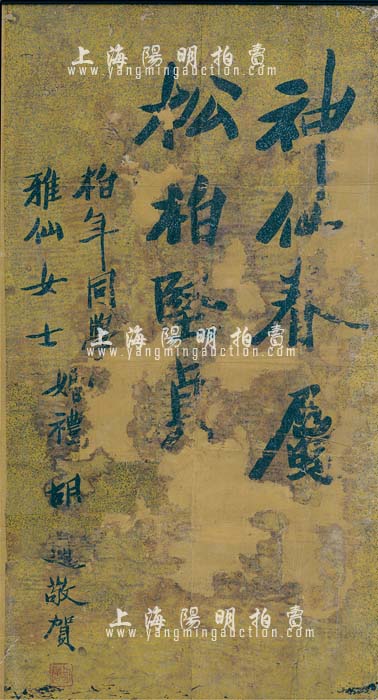 神仙春属
松柏坚貞
柏年同學
雅仙女士 婚禮 胡適敬賀
上海陽明拍賣
www.yangmingauction.com
上海陽明拍賣
www.yangmingauction.com
上海陽明拍賣
www.yangmingauction.com